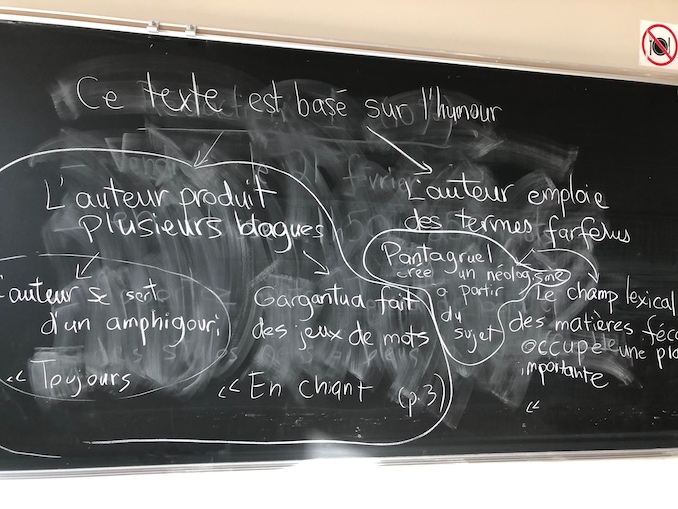 Ce texte est basé sur l'humour
L'auteur produit
plusieurs blagues
L'auteur emploie
des termes farfelus
l'auteur se sert
d'un amphigouri
« Toujours
Gargantua fait
des jeux de mots
« En chiant (p. 3)
Pantagruel
crée un néologisme
à partir
du
sujet
Le champ lexical
des matières féca
occupe une pla
importante
«